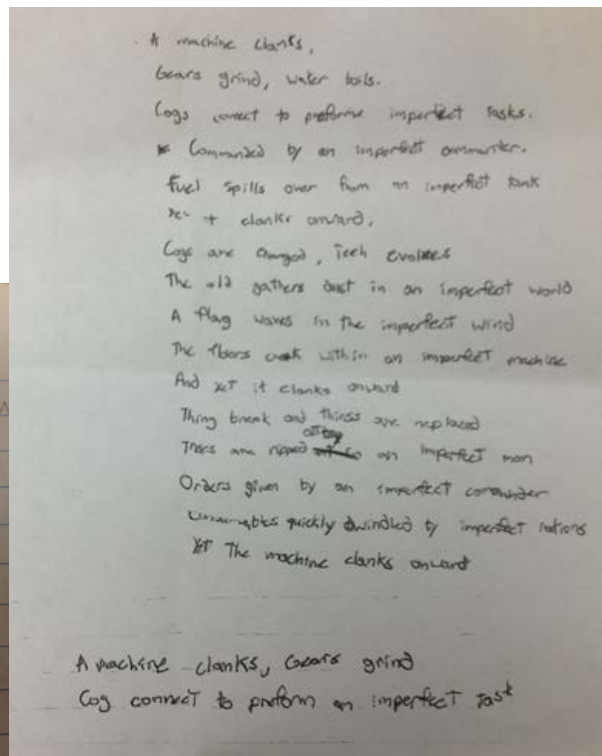 A machine clanks,
Gears grind, water boils.
Cogs connect to preforme imperfect tasks.
Commanded by an imperfect commander.
Fuel spills over from an imperfect tank
clanks onward,
Cogs are changed, Tech evolves
The old gathers dust in an imperfect world
A flag waves in the imperfect wind
The floors creak within an imperfect machine
And yet it clanks onward
Thing break and things are replaced
Trees are ripped an imperfect man
Orders given by an imperfect commander
quickly dwindled by imperfect nations
Yet The machine clanks onward
A machine clanks, Gears grind
Cog connect to preform an imperfect Task